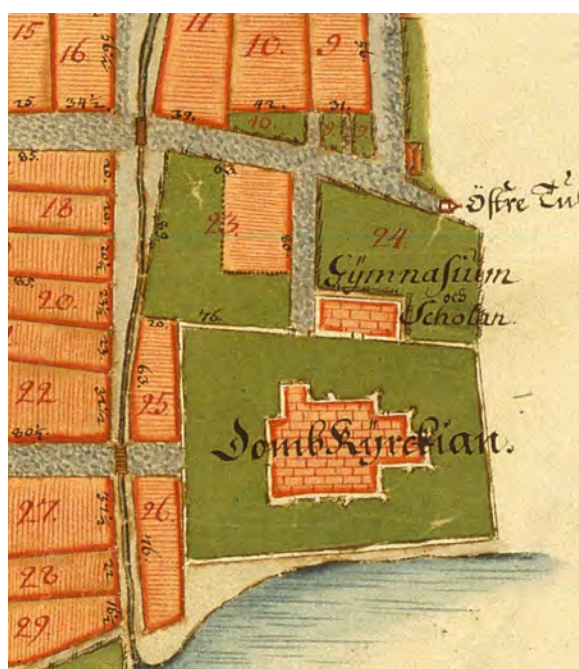 15
16
11.
10.
9
25.
34½
39.
42.
31.
10.
9
9
85.
18
23.
24.
Östre Tu
Gÿmnasium
och
Scholan.
85.
20.
76.
20.
63
22
25
80½.
DombKÿrckian.
27.
26.
76.
22
28
29.